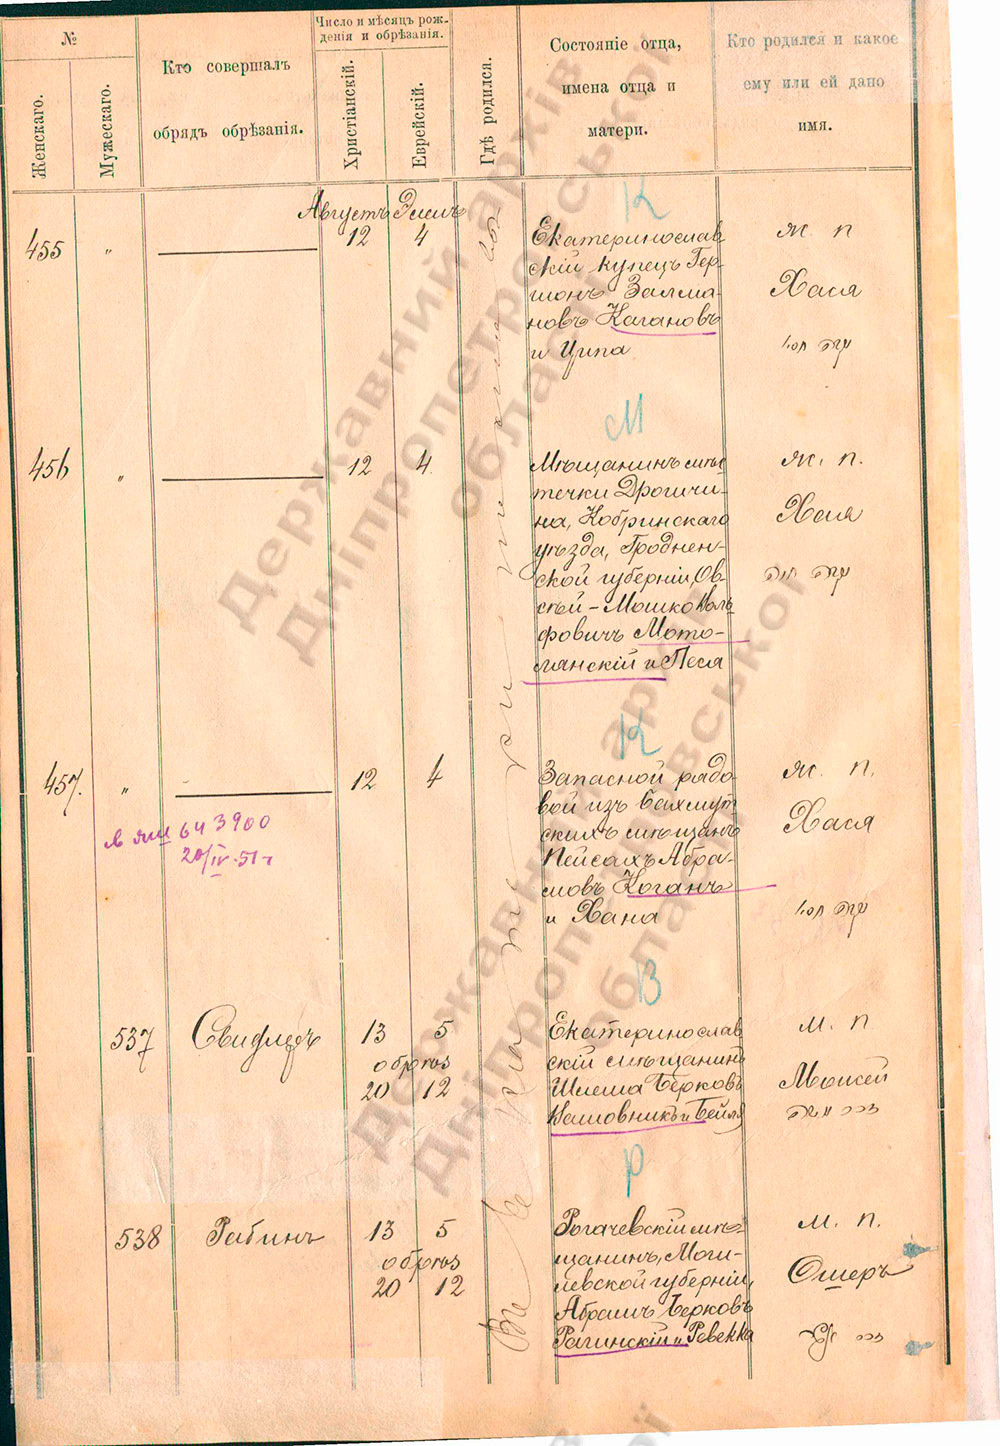 №
Женскаго.
Мужескаго.
Кто совершалъ
обрядъ обрѣзанія.
Число и мѣсяцъ рож-
денія и обрѣзанія.
Христіанскій.
Еврейскій.
Гдѣ родился.
Состояніе отца,
имена отца и
матери.
Кто родился и какое
ему или ей дано
имя.
Августъ Элелъ
455 " 12 4
К
Екатеринослав
скій купецъ Гер-
шонъ Залма-
новъ Кагановъ
и Ципа
ж. п
Хася
456 " 12 4
М
Мѣщанинъ мѣс
течки Дрогичи-
на, Кобринскаго
уѣзда, Гроднен-
ской губерніи, Ов-
сѣй-Мошко Воль
фовичъ Мото-
лянскій и Песя
ж. п.
Хая
457. " 12 4
643900
20/IV-51 г
К
Запасной рядо-
вой изъ Бахмут
скихъ мѣщанъ
Пейсахъ Абра-
мовъ Коганъ
и Хана
ж. п.
Хася
537 13 5
обрѣз
20 12
В
Екатеринослав
скій мѣщанинъ
Шлема Берковъ
и Бейля
м. п
Моисей
538 Рабинъ 13 5
обрѣз
20 12
Р
Рогачевскій мѣ-
щанинъ, Моги-
левской губерніи,
Абрамъ Берковъ
Рагинскій и Ревекка
м. п.
Ошеръ
Державний архів
Дніпропетровської
області
Державний архів
Дніпропетровської
області